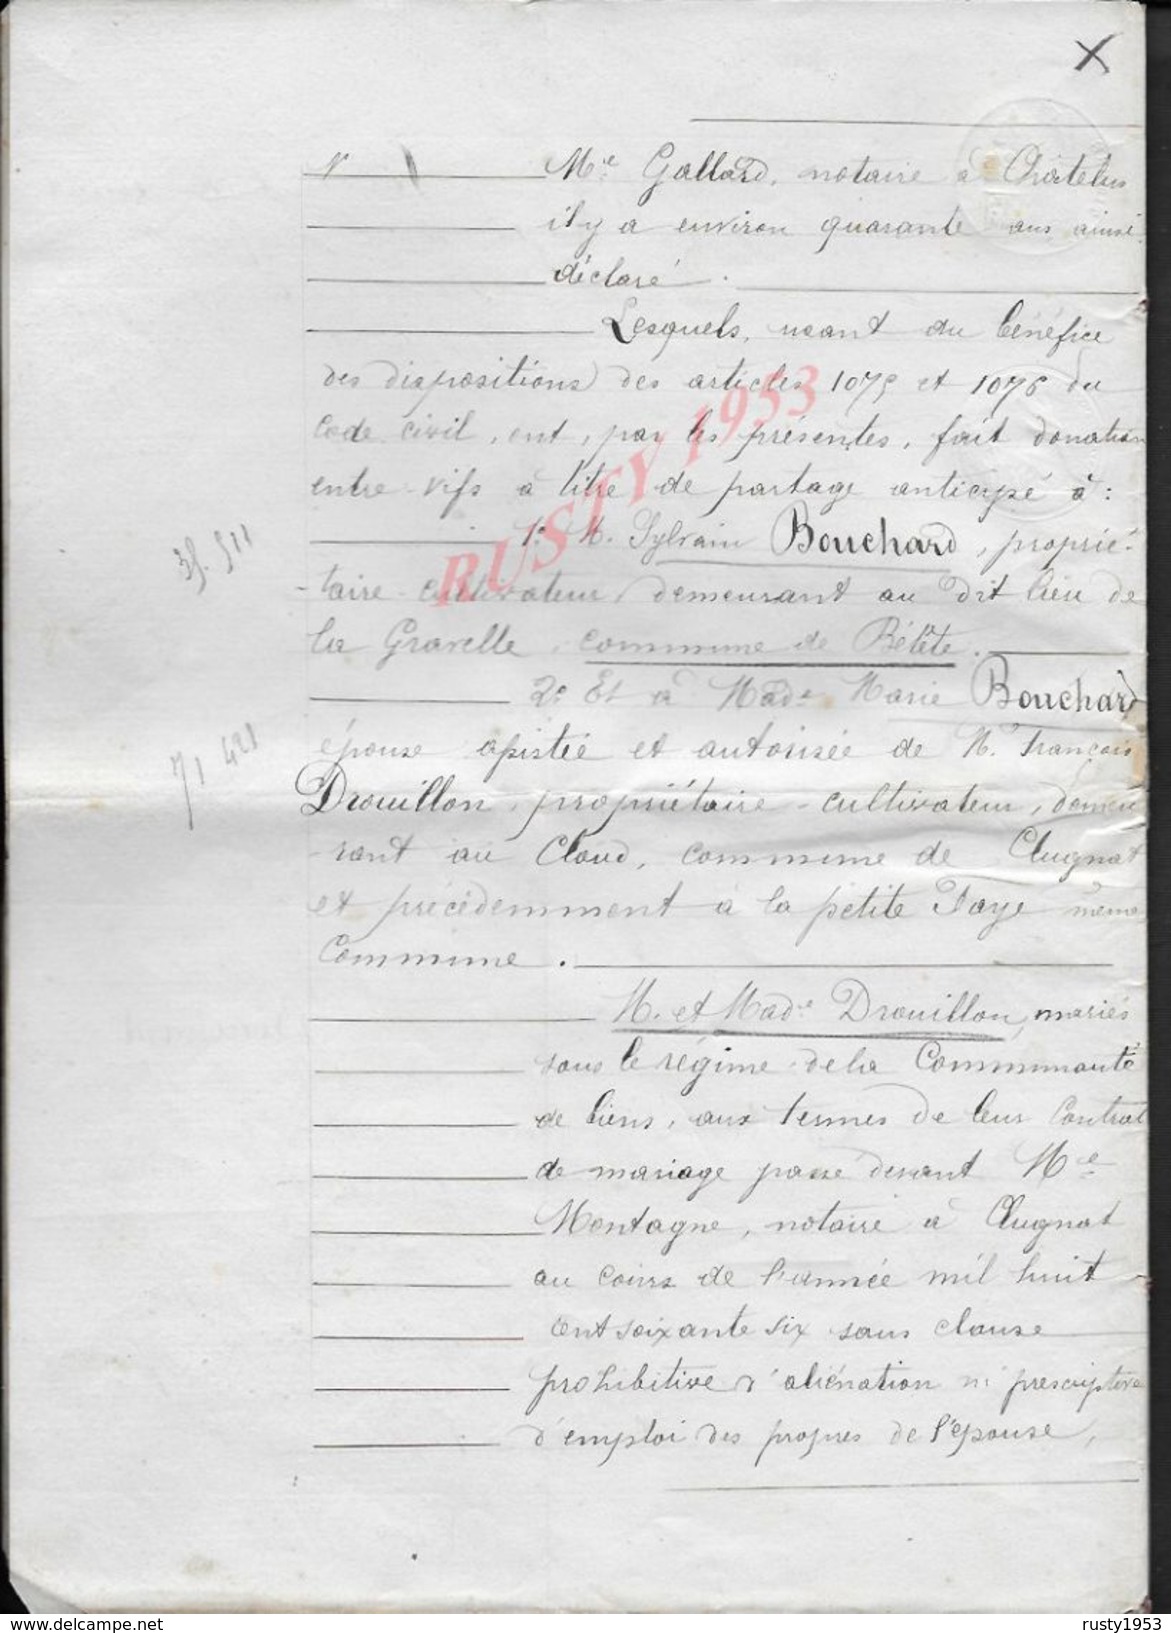 Mᵉ Gallard, notaire à Châtelus
il y a environ quarante ans ainsi
déclaré.
Lesquels, usant du bénéfice
des dispositions des articles 1075 et 1076 du
Code civil, ont, par les présentes, fait donation
entre-vifs à titre de partage anticipé à :
1º M. Sylvain Bouchard, proprié-
-taire-cultivateur, demeurant au dit lieu de
la Gravelle, commune de Bétête.
2º Et à Madᵉ Marie Bouchard
épouse assistée et autorisée de M. François
Drouillon, propriétaire-cultivateur, demeu
-rant au Cloud, commune de Clugnat
et précédemment à la petite Faye même
Commune.
M. et Madᵉ Drouillon, mariés
sous le régime de la Communauté
de biens, aux termes de leur Contrat
de mariage passé devant Mᵉ
Montagne, notaire à Clugnat
au cours de l'année mil huit
cent soixante six sans clause
prohibitive d'aliénation ni prescriptive
d'emploi des propres de l'épouse,
RUSTY1953
delcampe.net
rusty1953